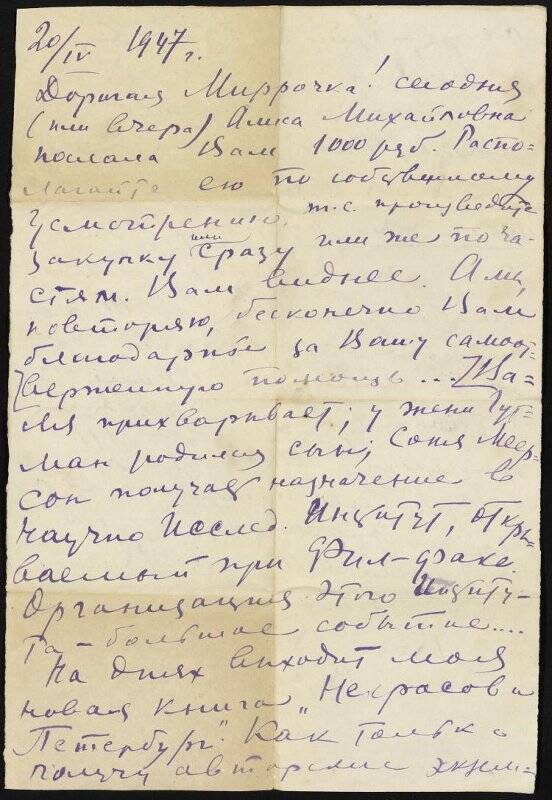 20/IV 1947 г.
Дорогая Миррочка! Сегодня
(или вчера) Алиса Михайловна
послала Вам 1000 руб. Распо=
лагайте ею по собственному
усмотрению, т.е. произведите
закупку или сразу или же по ча=
стям. Вам виднее. А мы,
повторяю, бесконечно Вам
благодарны за Вашу самоот=
верженную помощь... [Ва=
ля прихварывает; у жены Гур=
ман родился сын; Соня Меер=
сон получает назначение в
Научно Исслед. Институт, откры=
ваемый при Фил-факе.
Организация этого Институ-
та – большое событие....
На днях выходит моя
новая книга "Некрасов и
Петербург". Как только
получу авторские экзем=